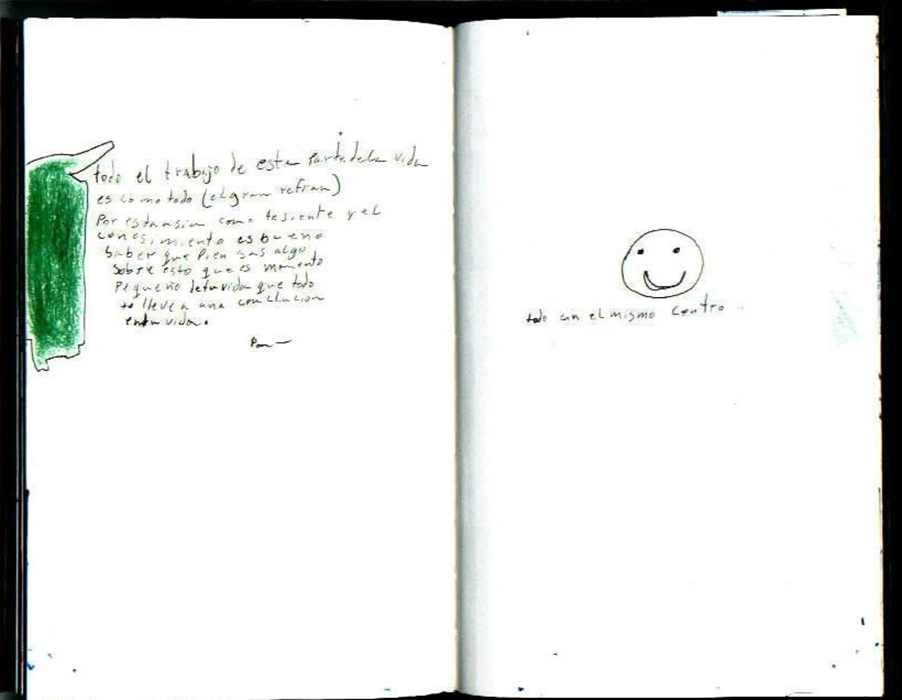 todo el trabajo de esta parte dela vida
es como todo (el gran refran)
Por estansia como tesiente y el
conosimiento es bueno
Saber que Piensas algo
Sobre esto que es momento
Pequeño detuvida que todo
te lleve a una conclucion
entuvida.
todo en el mismo centro